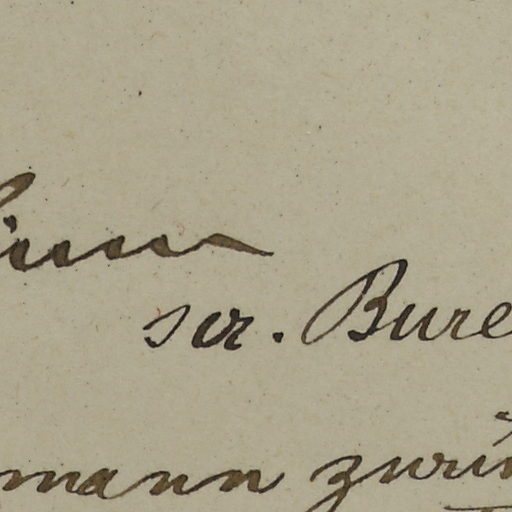 scr. Bure
mann zurü